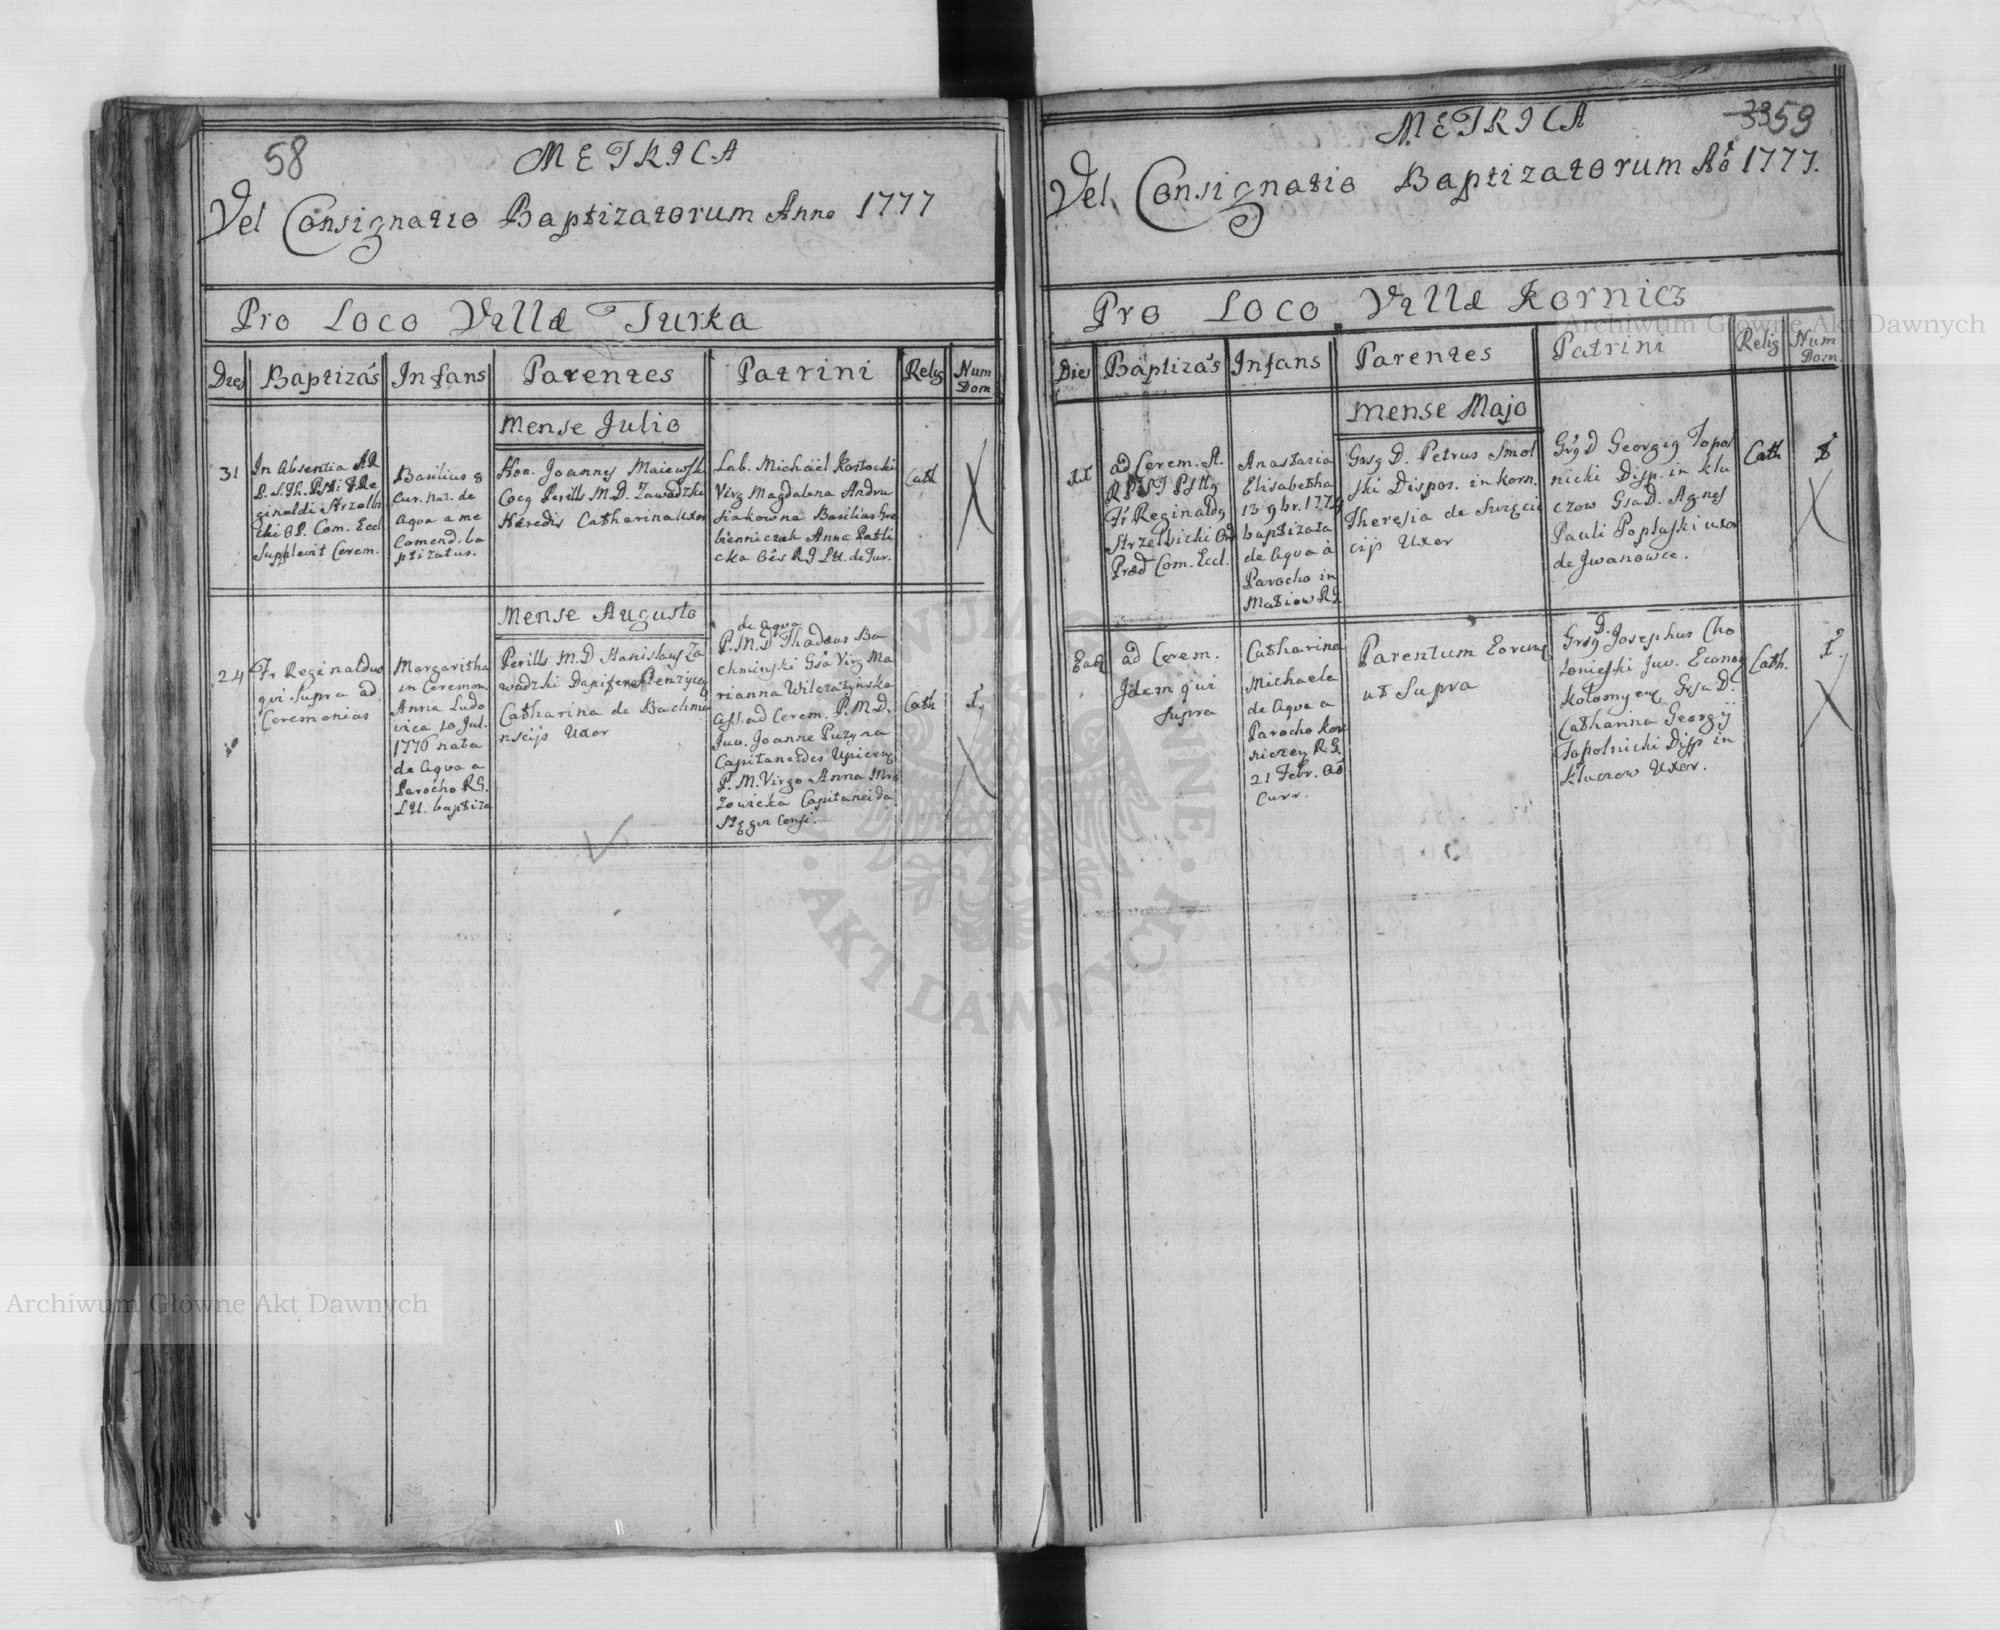 58
METRICA
Vel Consignatio Baptizatorum Anno 1777
Pro Loco Villæ Turka
Dies Baptizãs Infans Parentes Patrini Relig Num Dom
Mense Julio
31
In absentia AR
P. S. Th.
ginaldi Strzelb
icki OP. Com. Eccl
Supplevit Cerem.
Basilius 8
cur. nat. de
aqva a me
Comend. ba
ptizatus.
Hon. Joannes Maiewski
Cocq Perills M. D. Zawadzki
Hæredis Catharina uxor
Lab. Michaël Kostocki
Virg Magdalena Andru
siakowna Basilius Gre
bienniczek Anna
cka
Cath
Mense Augusto
24
Fr Reginaldus
qvi supra ad
Ceremonias
Margaritha
in Ceremon.
Anna Ludo
vica 10 Jul.
1776 nata
de aqva a
Parocho R. G.
L U. baptiza
Perills M. D Stanislaus Za
wadzki Dapifer
Catharina de Bachmi
nscijs Uxor
de aqva
P. M. D Thadæus Ba
chminski Gsa Virg Ma
rianna Wilczatynska
ad Cerem. P. M. D.
Juv. Joanne Puzyna
Capitaneides Upicens
P. M. Virgo Anna Mro
zowicka Capitaneida
Cath
1.
3359
METRICA
Vel Consignatio Baptizatorum Aõ 1777.
Pro Loco Villæ Kornicz
Dies Baptizãs Infans Parentes Patrini Relig Num Dom.
Mense Majo
11
ad Cerem. A.
Fr Reginaldg
Strzelbicki Ord
Præd Com. Eccl.
Anastazia
Elisabetha
13 9br. 1774
baptizata
de aqva à
Parocho in
Matiow R G
Grsg D. Petrus Smol
ski Dispos. in Korn.
Theresia de Swięcic
cijs Uxor
Grsg D Georgig Topol
nicki Disp. in Klu
czow Gsa D. Agnes
Pauli Poplaski uxor
de Jwanowce.
Cath
1
Eadz
ad Cerem.
Jdem qvi
supra
Catharina
Michaela
de aqva a
Parocho Kor
niczen R. G.
21 Febr. aõ
Curr.
Parentum Eorumq
ut Supra
Grsg D. Josephus Cho
loniefski Juv. Econog
Kolomyens Gsa D.
Catharina Georgij
Topolnicki Disp in
Kluczow Uxor.
Cath.
1.
Archiwum Główne Akt Dawnych
Archiwum Główne Akt Dawnych
AKT DAWNYCH